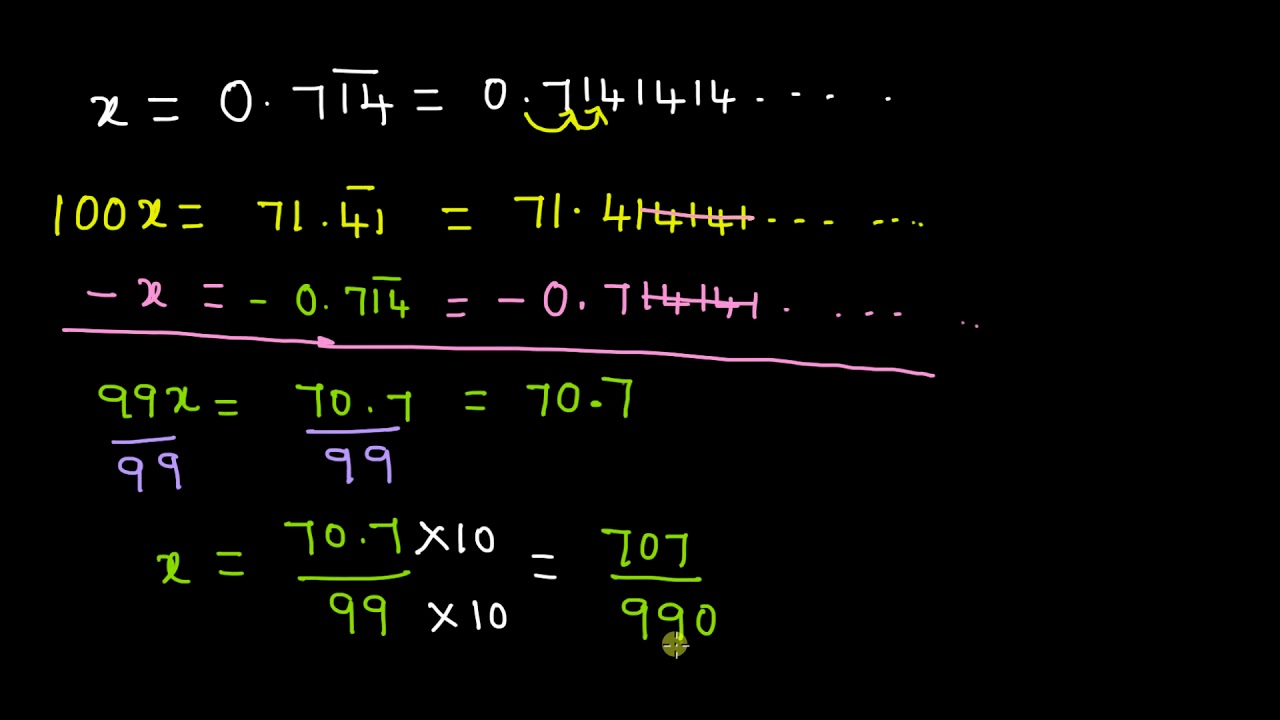 x = 0.71̅4̅ = 0.7141414.... .
100x = 71.4̅1 = 71.414141.... ....
- x = - 0.71̅4̅ = - 0.714141. ... ..
99x = 70.7 = 70.7
99 99
x = 70.7 ×10 = 707
99 ×10 990